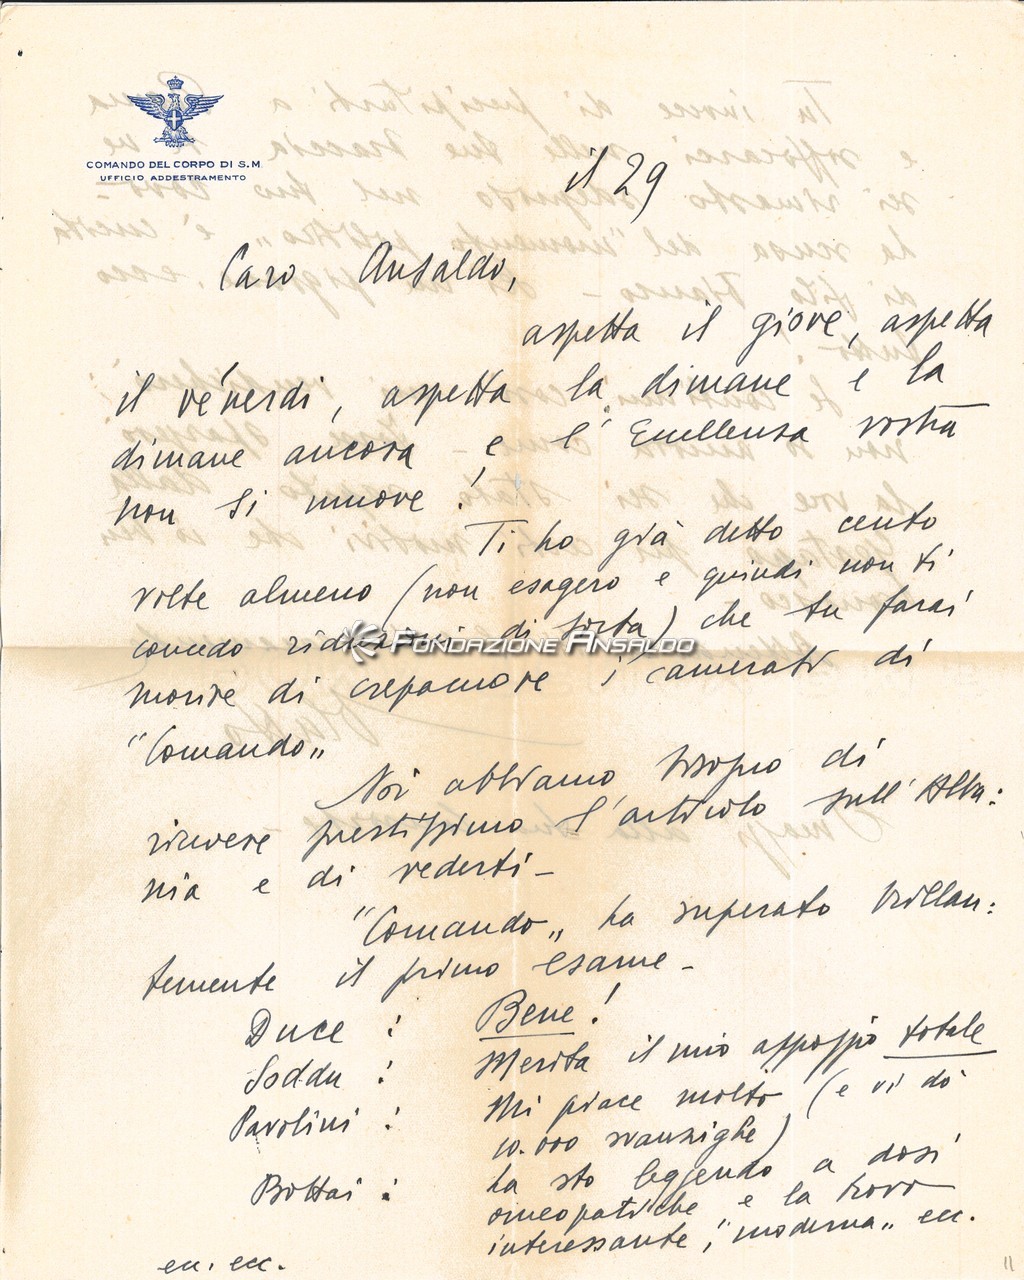 COMANDO DEL CORPO DI S.M.
UFFICIO ADDESTRAMENTO
il 29
Caro Ansaldo,
aspetta il giove, aspetta
il venerdi, aspetta la dimane e la
dimane ancora e l'Eccellenza vostra
non si muove!
Ti ho già detto cento
volte almeno (non esagero e quindi non ti
concedo riduzioni di sorta) che tu farai
morire di crepacuore i camerati di
"Comando„
Noi abbiamo bisogno di
ricevere prestissimo l'articolo sull'Alba:
nia e di vederti –
"Comando„ ha superato brillan:
temente il primo esame –
Duce : Bene!
Soddu : Merita il mio appoggio totale
Pavolini : Mi piace molto (e vi dò
10.000 svanziche)
Bottai : la sto leggendo a dosi
omeopatiche e la trovo
interessante, "moderna„ ecc.
ecc. ecc.
FONDAZIONE ANSALDO
11